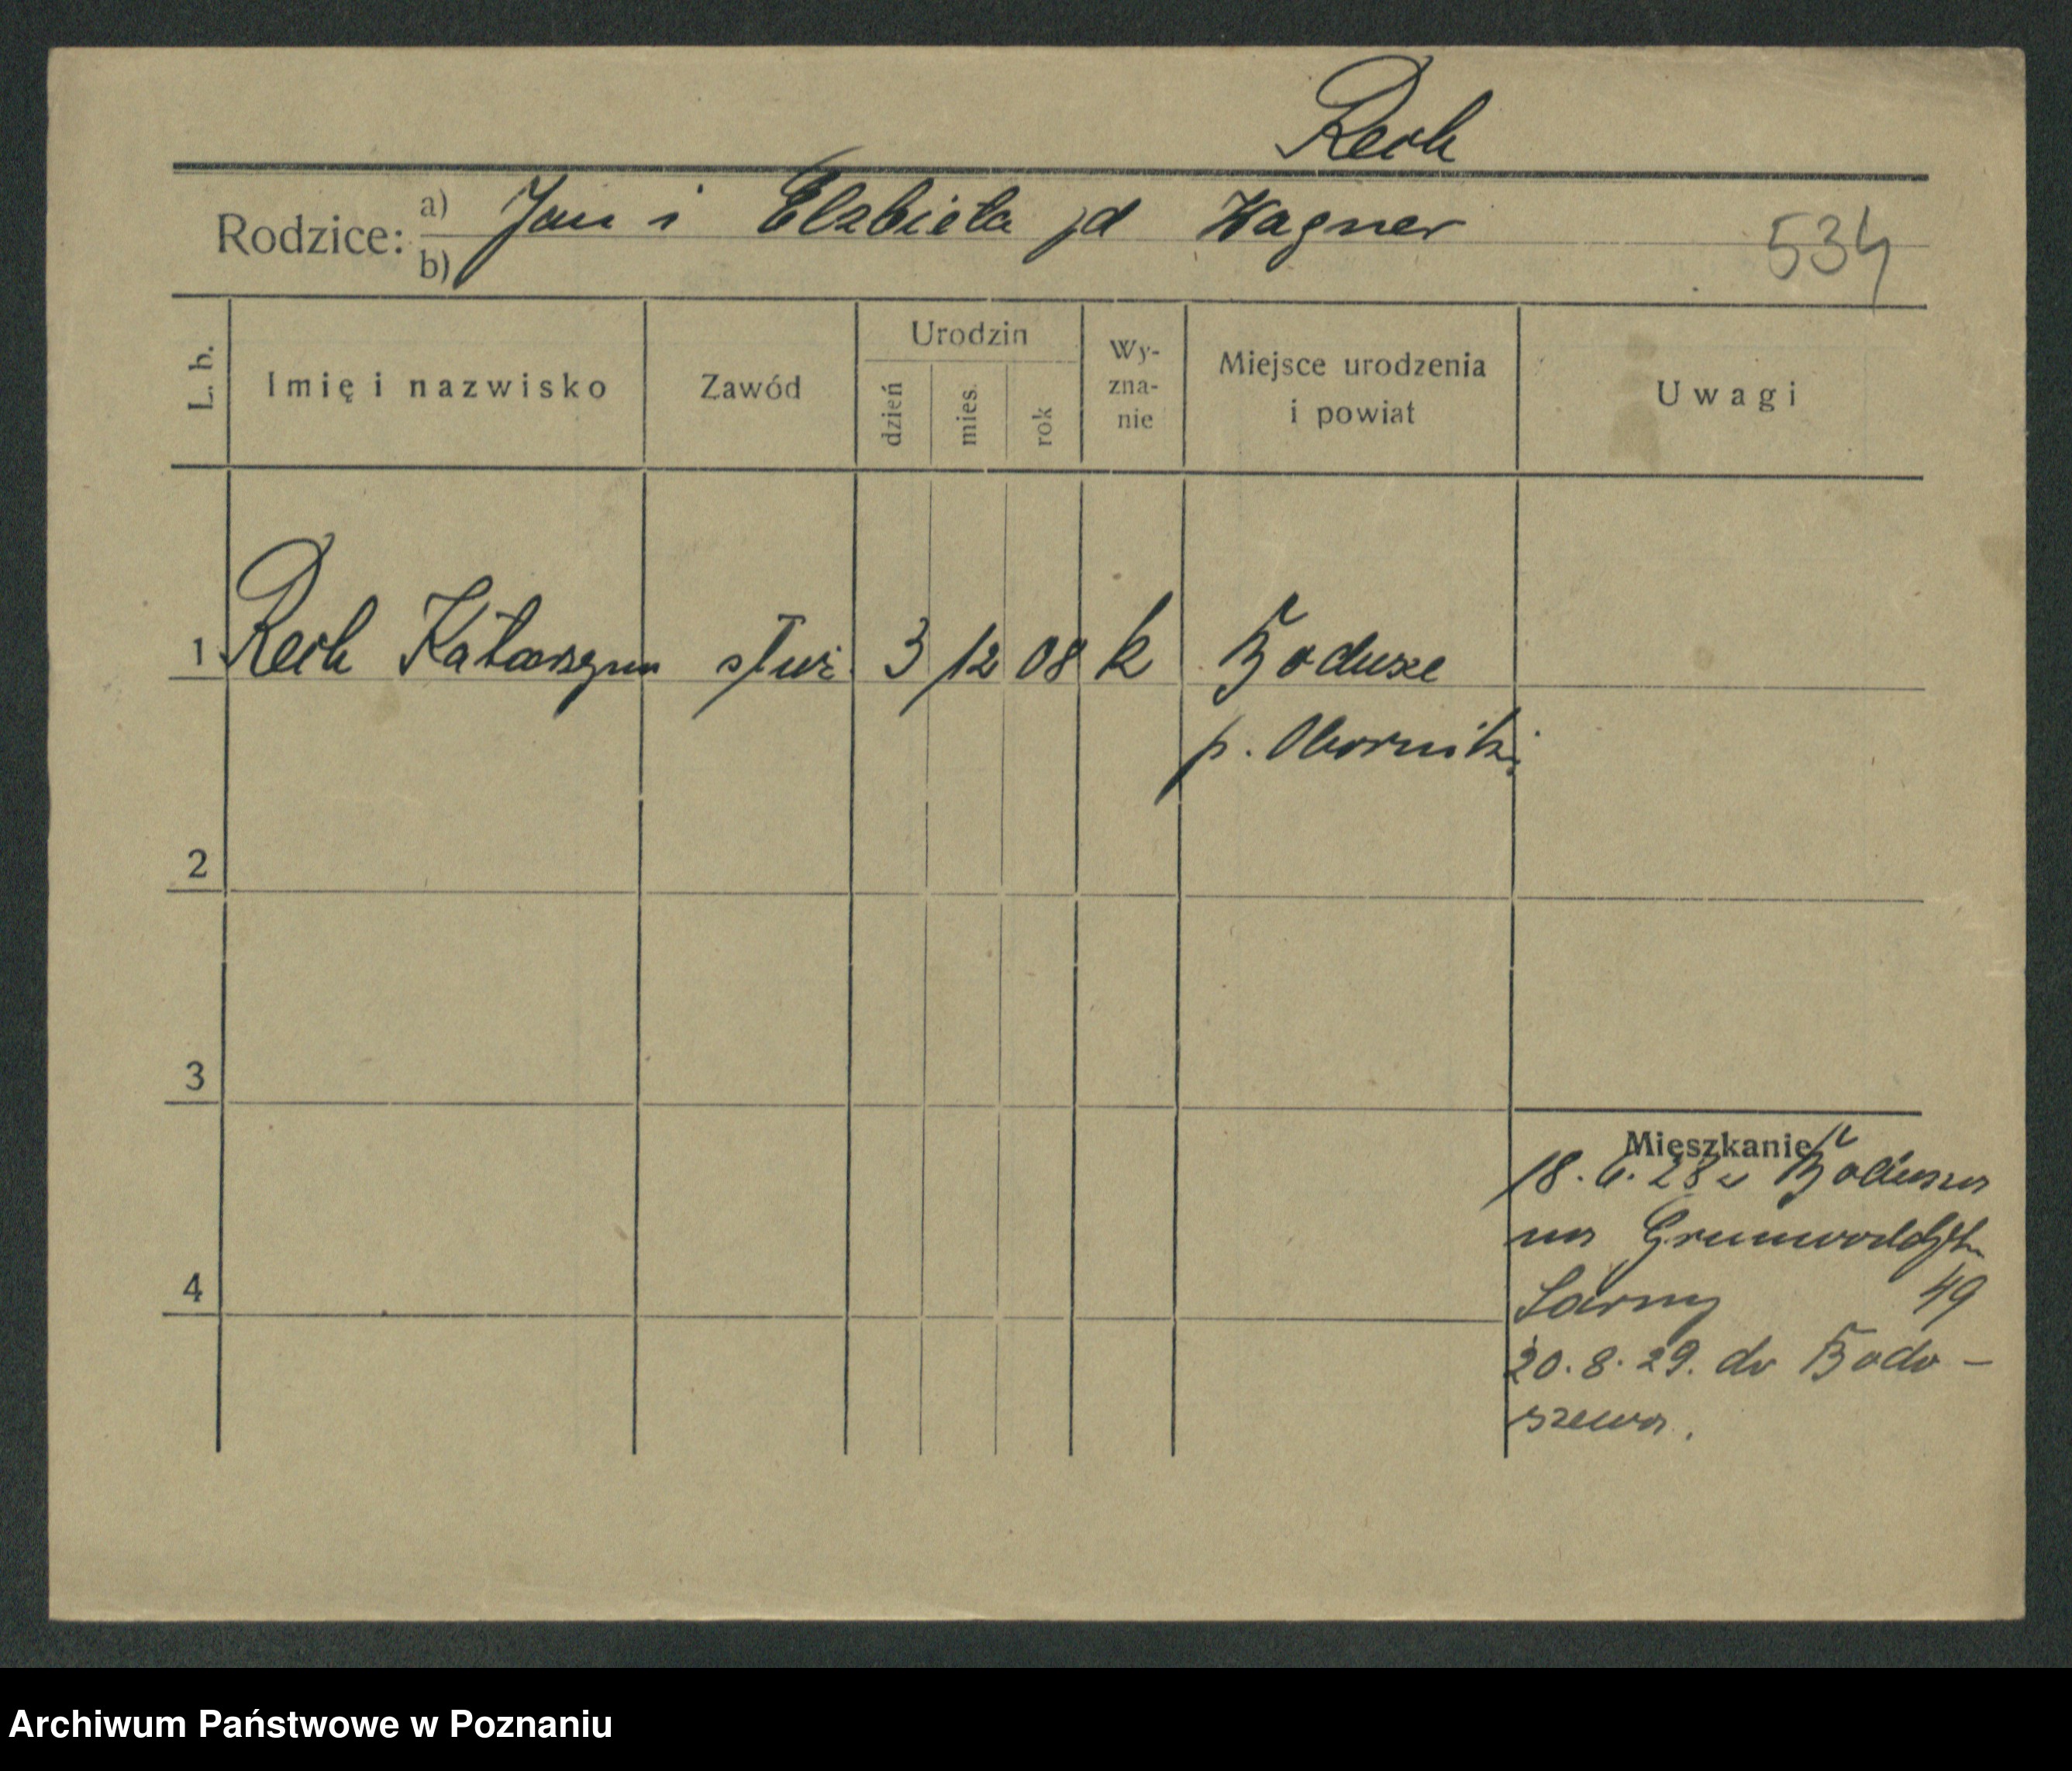 Rerh
Rodzice: a) Jan i Elżbieta zd Wagner
b)
534
L. b.
Imię i nazwisko
Zawód
Urodzin
dzień
mies.
rok
Wy-
zna-
nie
Miejsce urodzenia
i powiat
Uwagi
1 Rerh Katarzyna służ. 3 12 08 k
p. Oborniki
2
3
4
Mieszkanie
18. 6. 28 z
na
Sarny 49
20. 8. 29. do Bodo-
szewa.
Archiwum Państwowe w Poznaniu